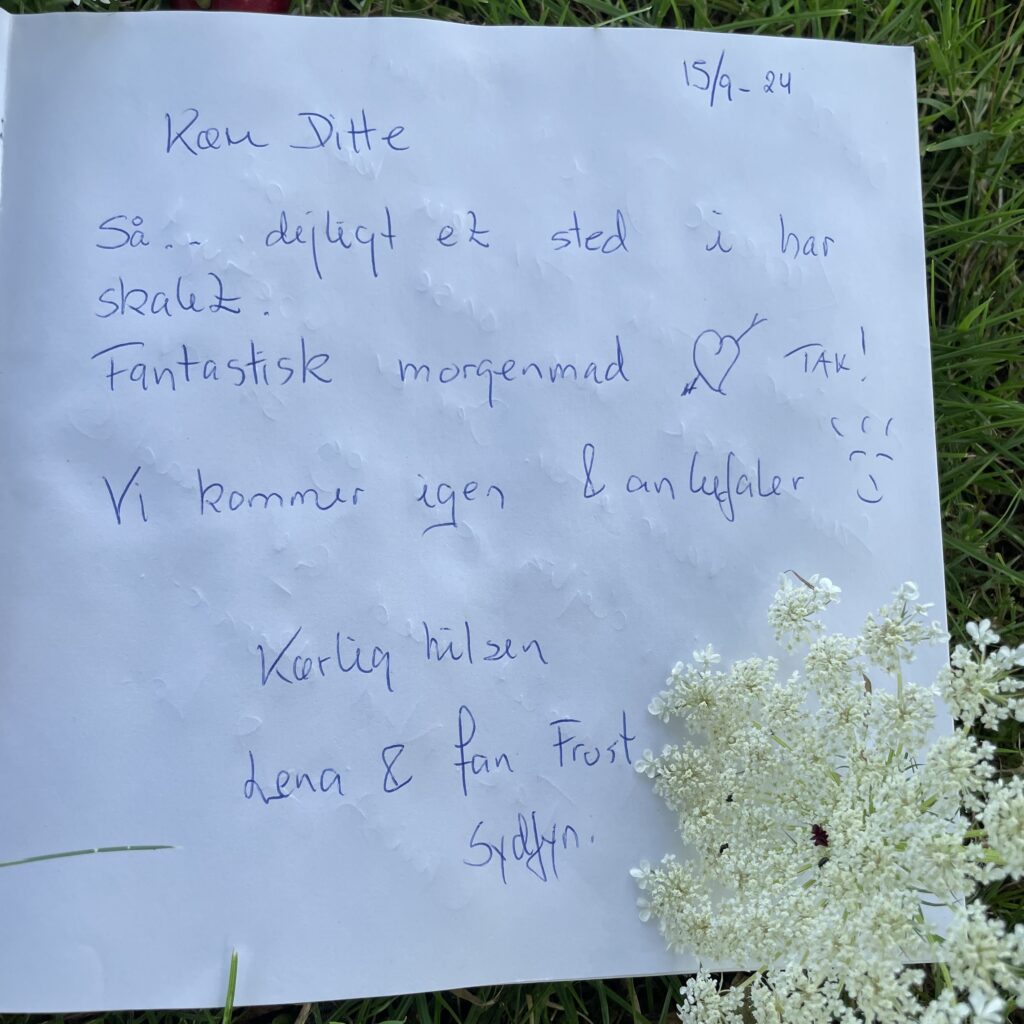 15/9-24
Kære Ditte
Så... dejligt et sted i har
skabt.
Fantastisk morgenmad TAK!
Vi kommer igen & anbefaler
Kærlig hilsen
Lena & Jan Frost
Sydfyn.